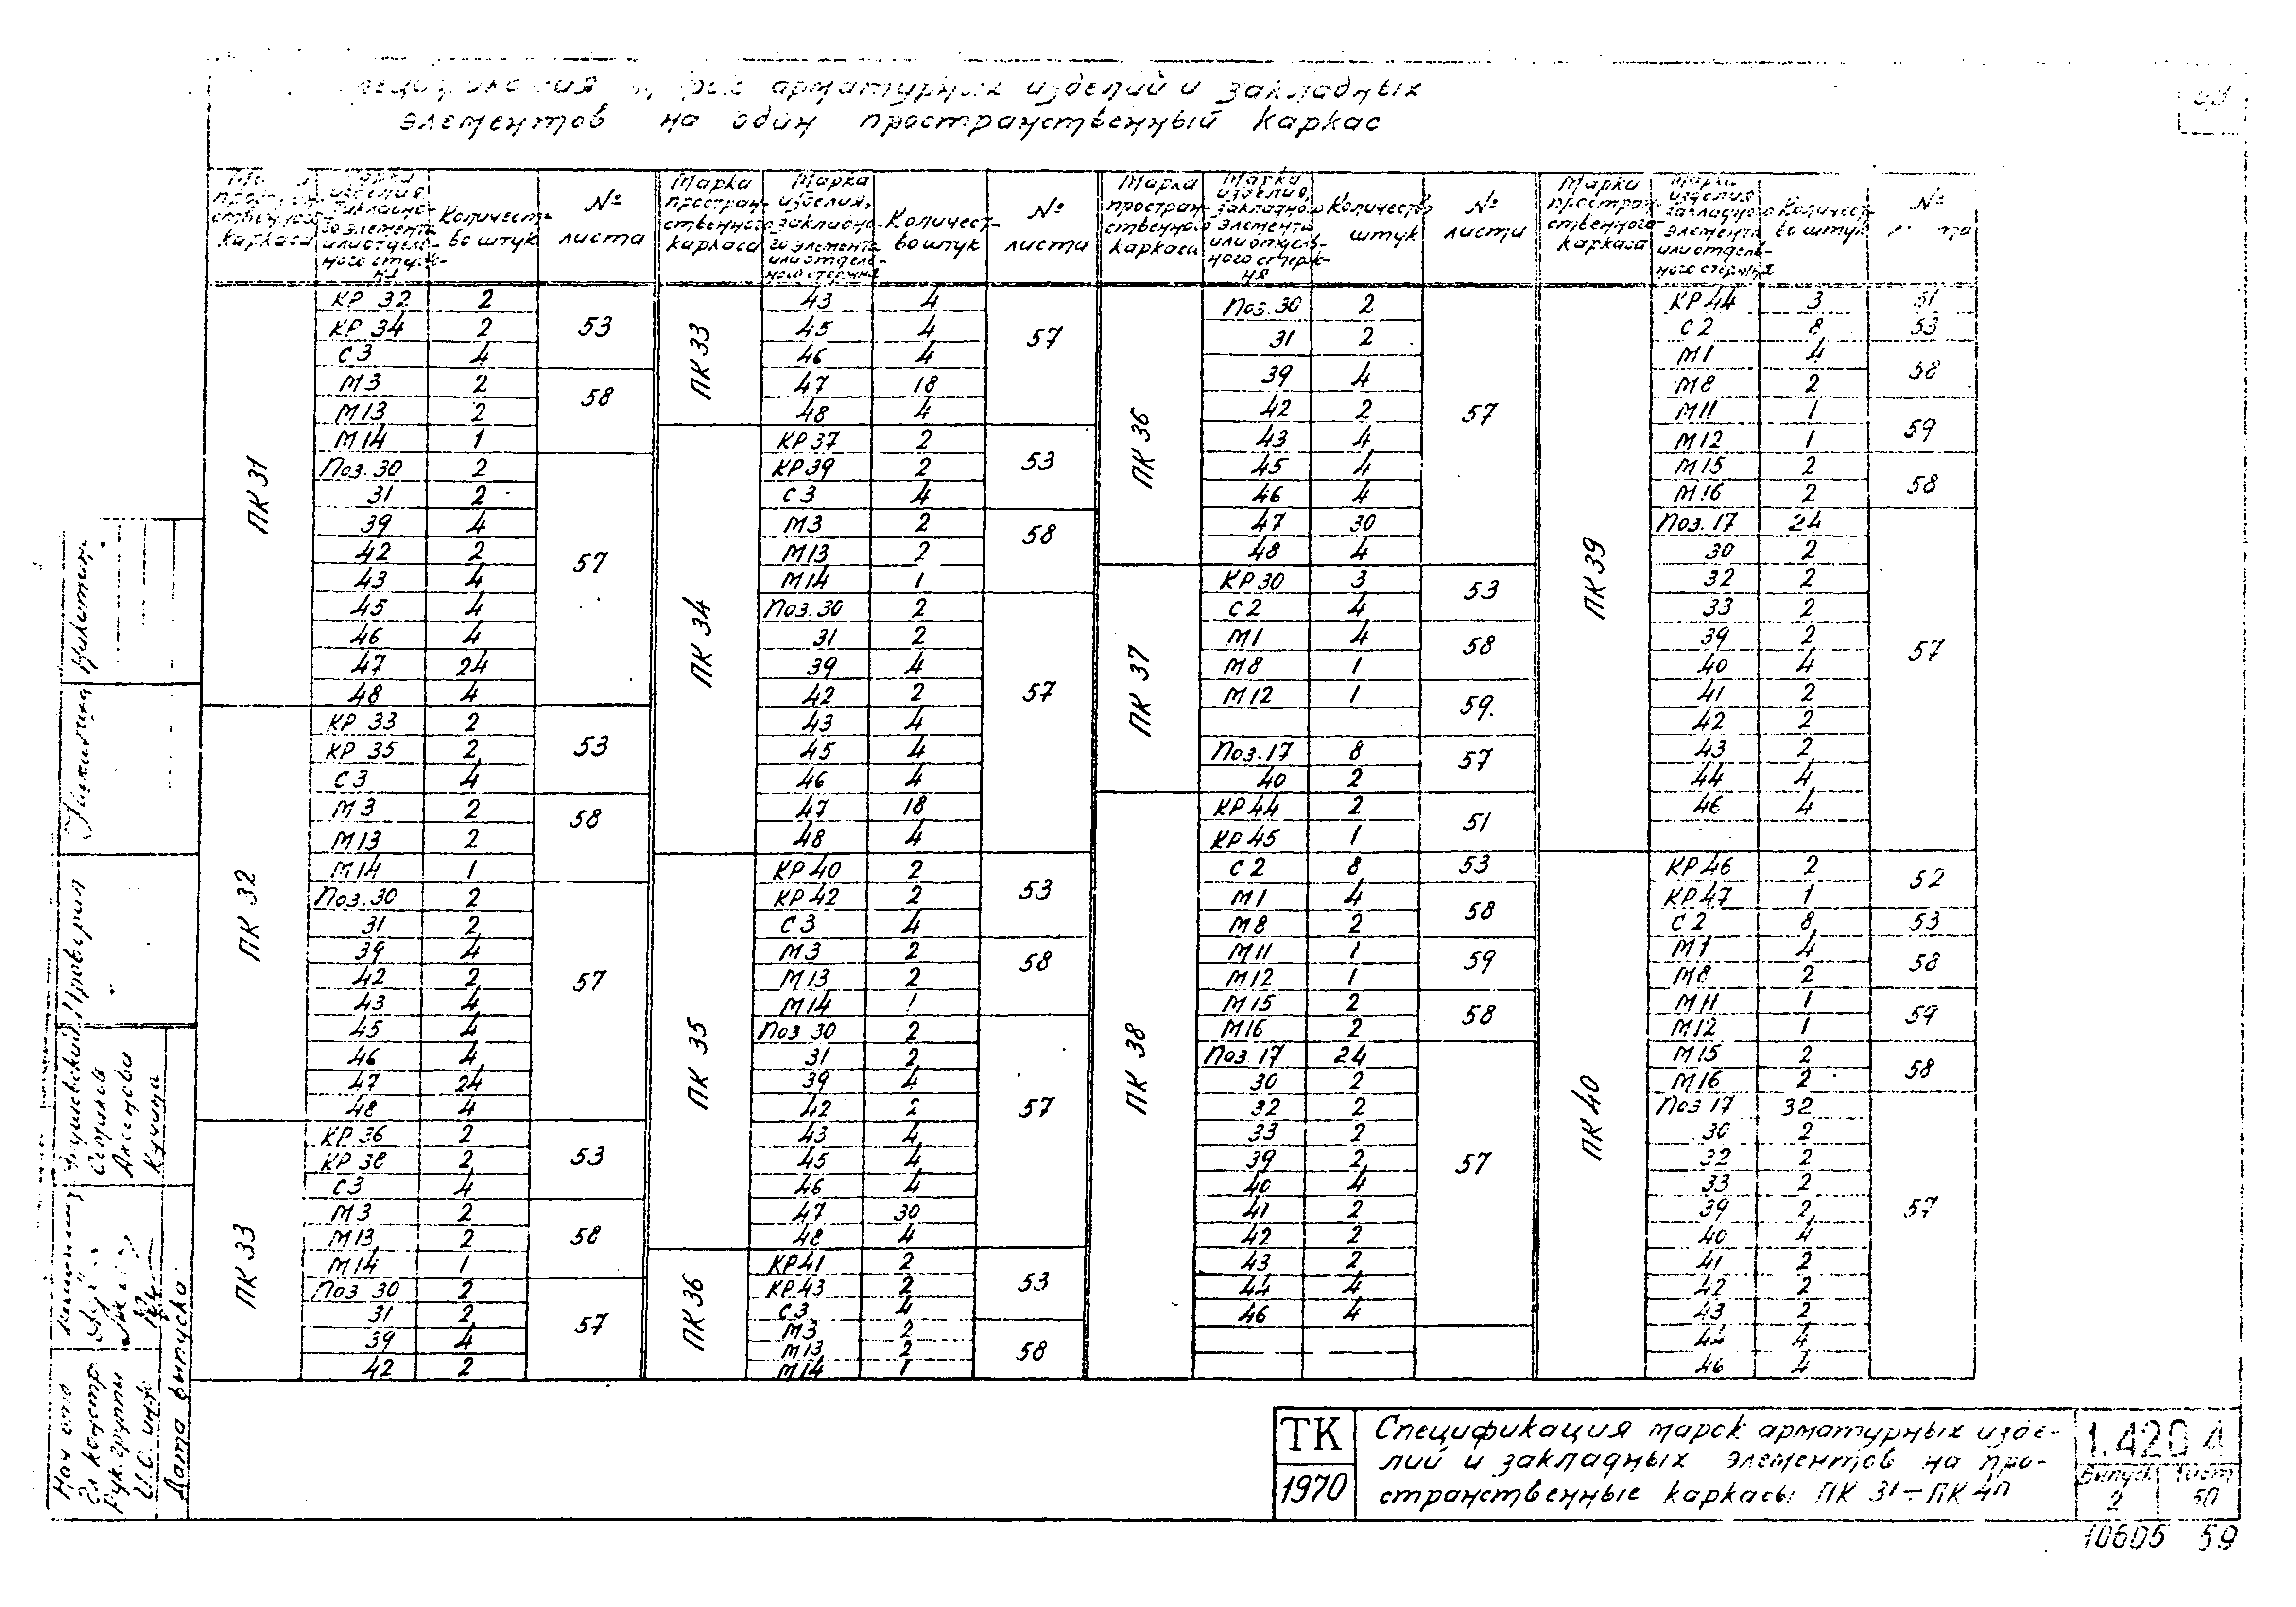 арматурных изделий и закладных
элементов на один пространственный каркас
Марка пространственного каркаса | Марка изделия, закладного элемента или отдельного стержня | Количество штук | № листа
ПК 31
КР 32 2 53
КР 34 2
С3 4
М3 2 58
М13 2
М14 1
Поз.30 2 57
31 2
39 4
42 2
43 4
45 4
46 4
47 24
48 4
ПК 32
КР 33 2 53
КР 35 2
С3 4
М3 2 58
М13 2
М14 1
Поз.30 2 57
31 2
39 4
42 2
43 4
45 4
46 4
47 24
48 4
ПК 33
КР 36 2 53
КР 38 2
С3 4
М3 2 58
М13 2
М14 1
Поз 30 2 57
31 2
39 4
42 2
Марка пространственного каркаса | Марка изделия, закладного элемента или отдельного стержня | Количество штук | № листа
ПК 33
43 4 57
45 4
46 4
47 18
48 4
ПК 34
КР37 2 53
КР39 2
С3 4
М3 2 58
М13 2
М14 1
Поз.30 2 57
31 2
39 4
42 2
43 4
45 4
46 4
47 18
48 4
ПК 35
КР 40 2 53
КР 42 2
С3 4
М3 2 58
М13 2
М14 1
Поз 30 2 57
31 2
39 4
42 2
43 4
45 4
46 4
47 30
48 4
ПК 36
КР41 2 53
КР43 2
С3 4
М3 2 58
М13 2
М14 1
Марка пространственного каркаса | Марка изделия, закладного элемента или отдельного стержня | Количество штук | № листа
ПК 36
Поз.30 2 57
31 2
39 4
42 2
43 4
45 4
46 4
47 30
48 4
ПК 37
КР30 3 53
С2 4
М1 4 58
М8 1
М12 1 59
Поз.17 8 57
40 2
ПК 38
КР44 2 51
КР45 1
С2 8 53
М1 4 58
М8 2
М11 1 59
М12 1
М15 2 58
М16 2
Поз 17 24 57
30 2
32 2
33 2
39 2
40 4
41 2
42 2
43 2
44 4
46 4
Марка пространственного каркаса | Марка изделия закладного элемента или отдельного стержня | Количество штук | №
ПК 39
КР44 3 51
С2 8 53
М1 4 58
М8 2
М11 1 59
М12 1
М15 2 58
М16 2
Поз.17 24 57
30 2
32 2
33 2
39 2
40 4
41 2
42 2
43 2
44 4
46 4
ПК 40
КР46 2 52
КР47 1
С2 8 53
М1 4 58
М8 2
М11 1 59
М12 1
М15 2 58
М16 2
Поз 17 32 57
30 2
32 2
33 2
39 2
40 4
41 2
42 2
43 2
44 4
46 4
Проверил
Дата выпуска
ТК
1970
Спецификация марок арматурных изде-
лий и закладных элементов на про-
странственные каркасы ПК 31 – ПК 40
1.420 4
Выпуск Лист
2 50
10605 59